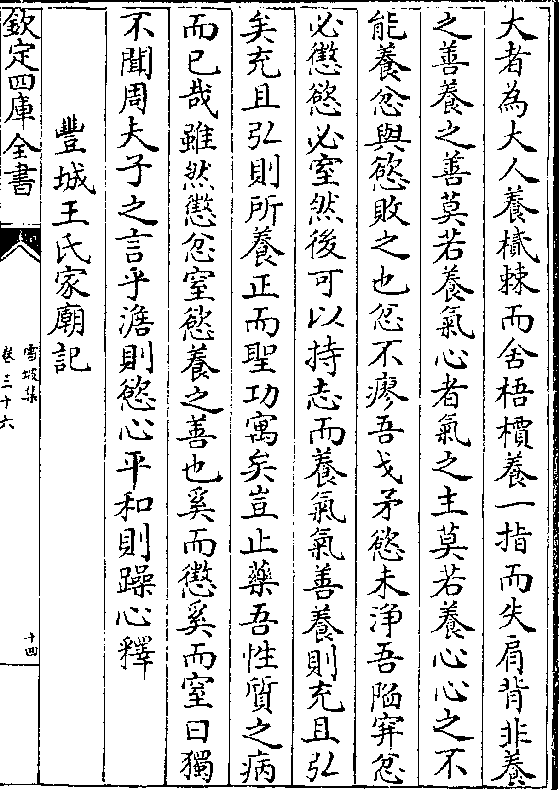 大者為大人養樲棘而舍梧檟養一指而失肩背非養
之善養之善莫若養氣心者氣之主莫若養心心之不
能養忿與慾敗之也忿不瘳吾戈矛慾未淨吾陷穽忿
必懲慾必窒然後可以持志而養氣氣善養則充且弘
矣充且弘則所養正而聖功寓矣豈止藥吾性質之病
而已哉雖然懲忿窒慾養之善也奚而懲奚而窒曰獨
不聞周夫子之言乎澹則慾心平和則躁心釋
豐城王氏家廟記
欽定四庫全書
雪坡集
卷三十六
十四